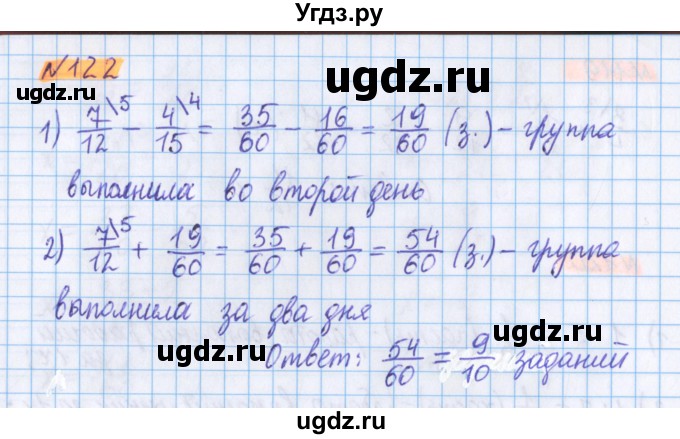 Угдз.ру
№122
ugdz.ru ugdz.ru
1) 7/12 \5 − 4/15 \4 = 35/60 − 16/60 = 19/60 (з.) – группа
выполнила во второй день
ugdz.ru ugdz.ru
2) 7/12 \5 + 19/60 = 35/60 + 19/60 = 54/60 (з.) – группа
выполнила за два дня
ugdz.ru ugdz.ru
Ответ: 54/60 = 9/10 заданий
ugdz.ru